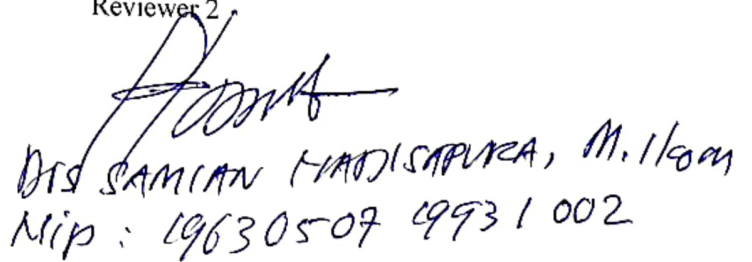 Reviewer 2
Drs SAMIAN HADISAPUTRA, M.Ikom
Nip : 19630507 19931 002